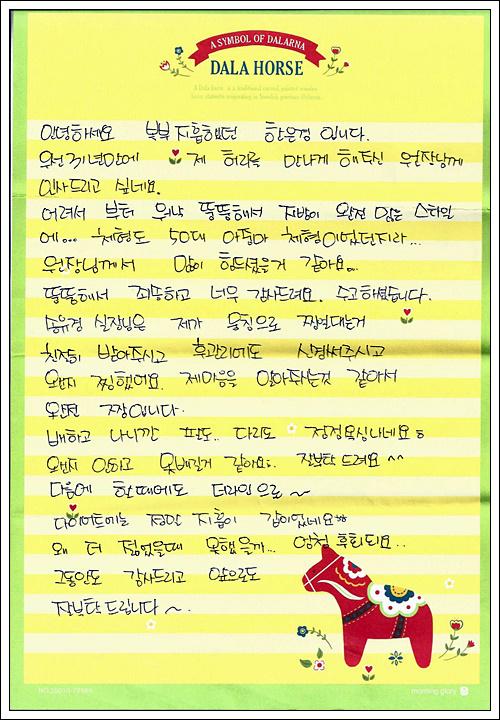 A SYMBOL OF DALARNA
DALA HORSE
A Dala horse is a traditional carved, painted wooden
horse statuette originating in Swedish province Dalarna.
안녕하세요 복부지흡했던 한은경 입니다.
우선 31년만에 제 허리를 만나게 해주신 원장님께
인사드리고 싶네요.
어려서 부터 워낙 뚱뚱해서 지방이 완전 많은 스타일
에... 체형도 50대 아줌마 체형이었던지라...
원장님께서 많이 힘드셨을거 같아요..
뚱뚱해서 죄송하고 너무 감사드려요. 수고하셨습니다.
송유경 실장님은 제가 울침으로 찡찡대는거
친절히 받아주시고 후관리에도 신경써주시고
왠지 찡했어요. 제마음을 알아주는것 같아서
완전 짱입니다.
배하고 나니깐 팔도.. 다리도 점점욕심나네요
왠지 안하고 못배길거 같아요. 잘부탁 드려요 ^^
다음에 할때에도 더라인으로 ~
다이어트에는 정말 지흡이 갑이었네요ㅎㅎ
왜 더 젊었을때 못했을까... 엄청 후회되요..
그동안도 감사드리고 앞으로도
잘부탁드립니다 ~.
morning glory